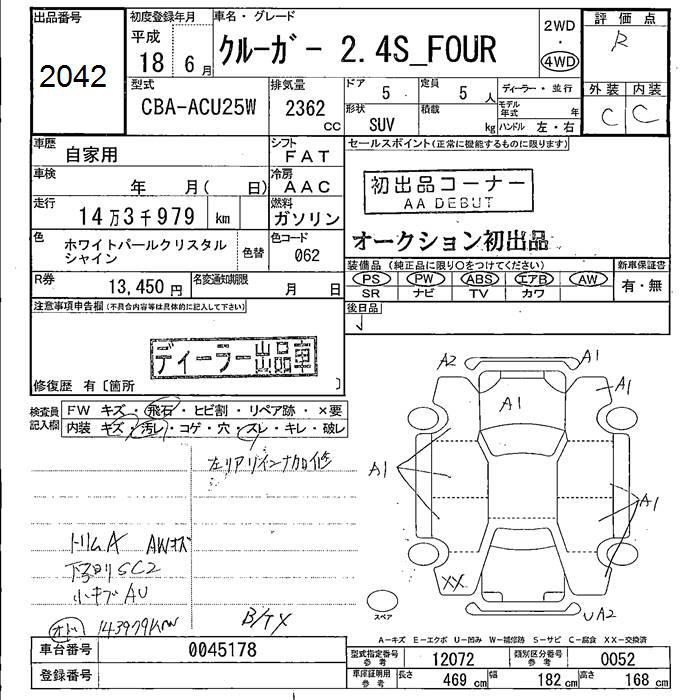 出品番号
2042
初度登録年月
平成
18 6月
車名・グレード
クルーガー 2.4S_FOUR
2WD
4WD
評価点
R
外装 内装
C C
型式
CBA-ACU25W
排気量
2362
CC
ドア
5
定員
5 人
形状
SUV
積載
kg
ディーラー・並行
モデル年式
年
ハンドル 左・右
車歴
自家用
シフト
FAT
車検
年 月( 日)
冷房
AAC
走行
14万3千979 km
燃料
ガソリン
色
ホワイトパールクリスタル
シャイン
色替
色コード
062
R券
13,450 円
名変通知期限
月 日
セールスポイント(正常に機能するものに限ります)
初出品コーナー
AA DEBUT
オークション初出品
装備品 (純正品に限り○をつけてください)
PS PW ABS エアB AW
SR ナビ TV カワ
新車保証書
有・無
後日品
注意事項申告欄(不具合内容等は具体的に記入して下さい)
ディーラー出品車
修復歴 有〔箇所 〕
検査員
記入欄
FW キズ・飛石・ヒビ割・リペア跡・×要
内装 キズ・汚レ・コゲ・穴・スレ・キレ・破レ
左リアリインナカロ修
トリムA AWキズ
下回りSC2
小キズAU
オド 143979km
B/TX
A2
A1
A1
A1
A1
A1
XX
UA2
スペア
A-キズ E-エクボ U-凹み W-補修跡 S-サビ C-腐食 XX-交換済
車台番号
0045178
登録番号
型式指定番号
参考
12072
類別区分番号
参考
0052
車庫証明用
参考
長さ
469 cm
幅
182 cm
高さ
168 cm